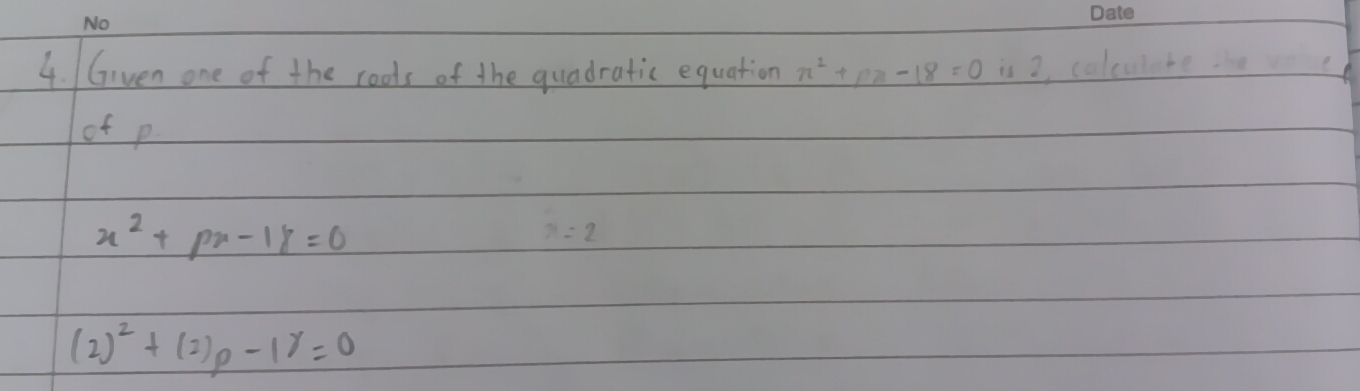 No Date
4. Given one of the roots of the quadratic equation x² + px - 18 = 0 is 2, calculate the value
of p.
x² + px - 18 = 0 x = 2
(2)² + (2)p - 18 = 0